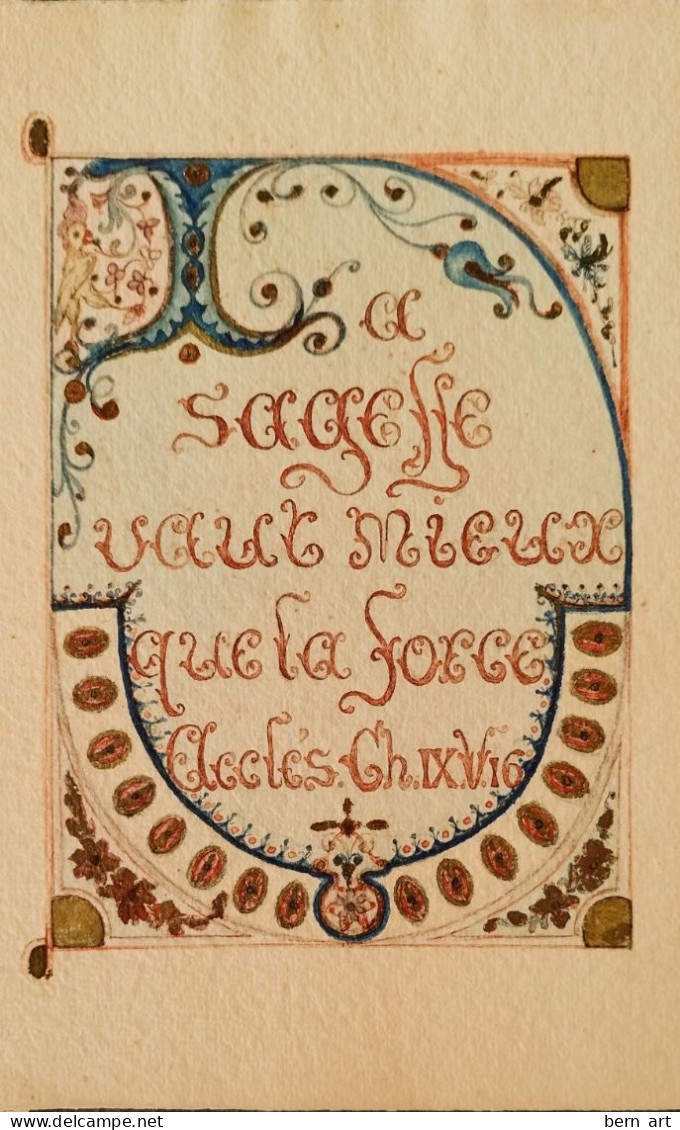 La
sageſſe
vaut mieux
que la force
Ecclés. Ch. IX. V. 16
www.delcampe.net
bern art